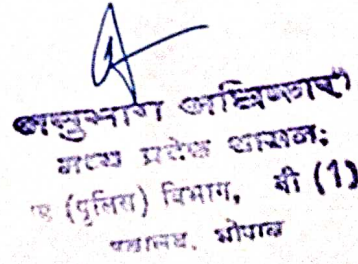 अनुभाग अधिकारी
मध्य प्रदेश शासन;
(पुलिस) विभाग, बी (1)
भोपाल